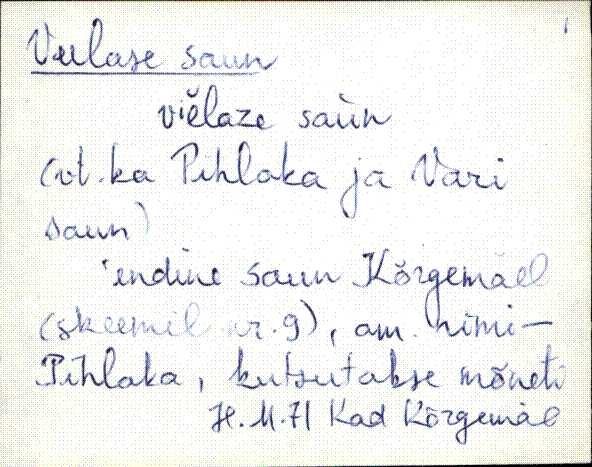 Veelase saun
viĕlaze saùn
(vt. ka Pihlaka ja Vari
saun)
'endine saun Kõrgemäel
(skeemil nr. 9), am. nimi –
Pihlaka, kutsutakse mõneti
H. M. 71 Kad Kõrgemäe